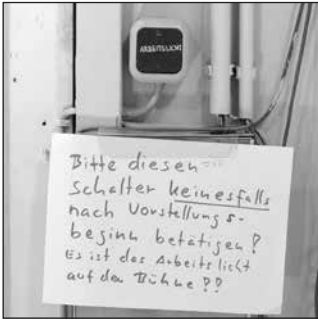 ARBEITSLICHT
Bitte diesen
Schalter keinesfalls
nach Vorstellungs-
beginn betätigen!
Es ist das Arbeitslicht
auf der Bühne!!